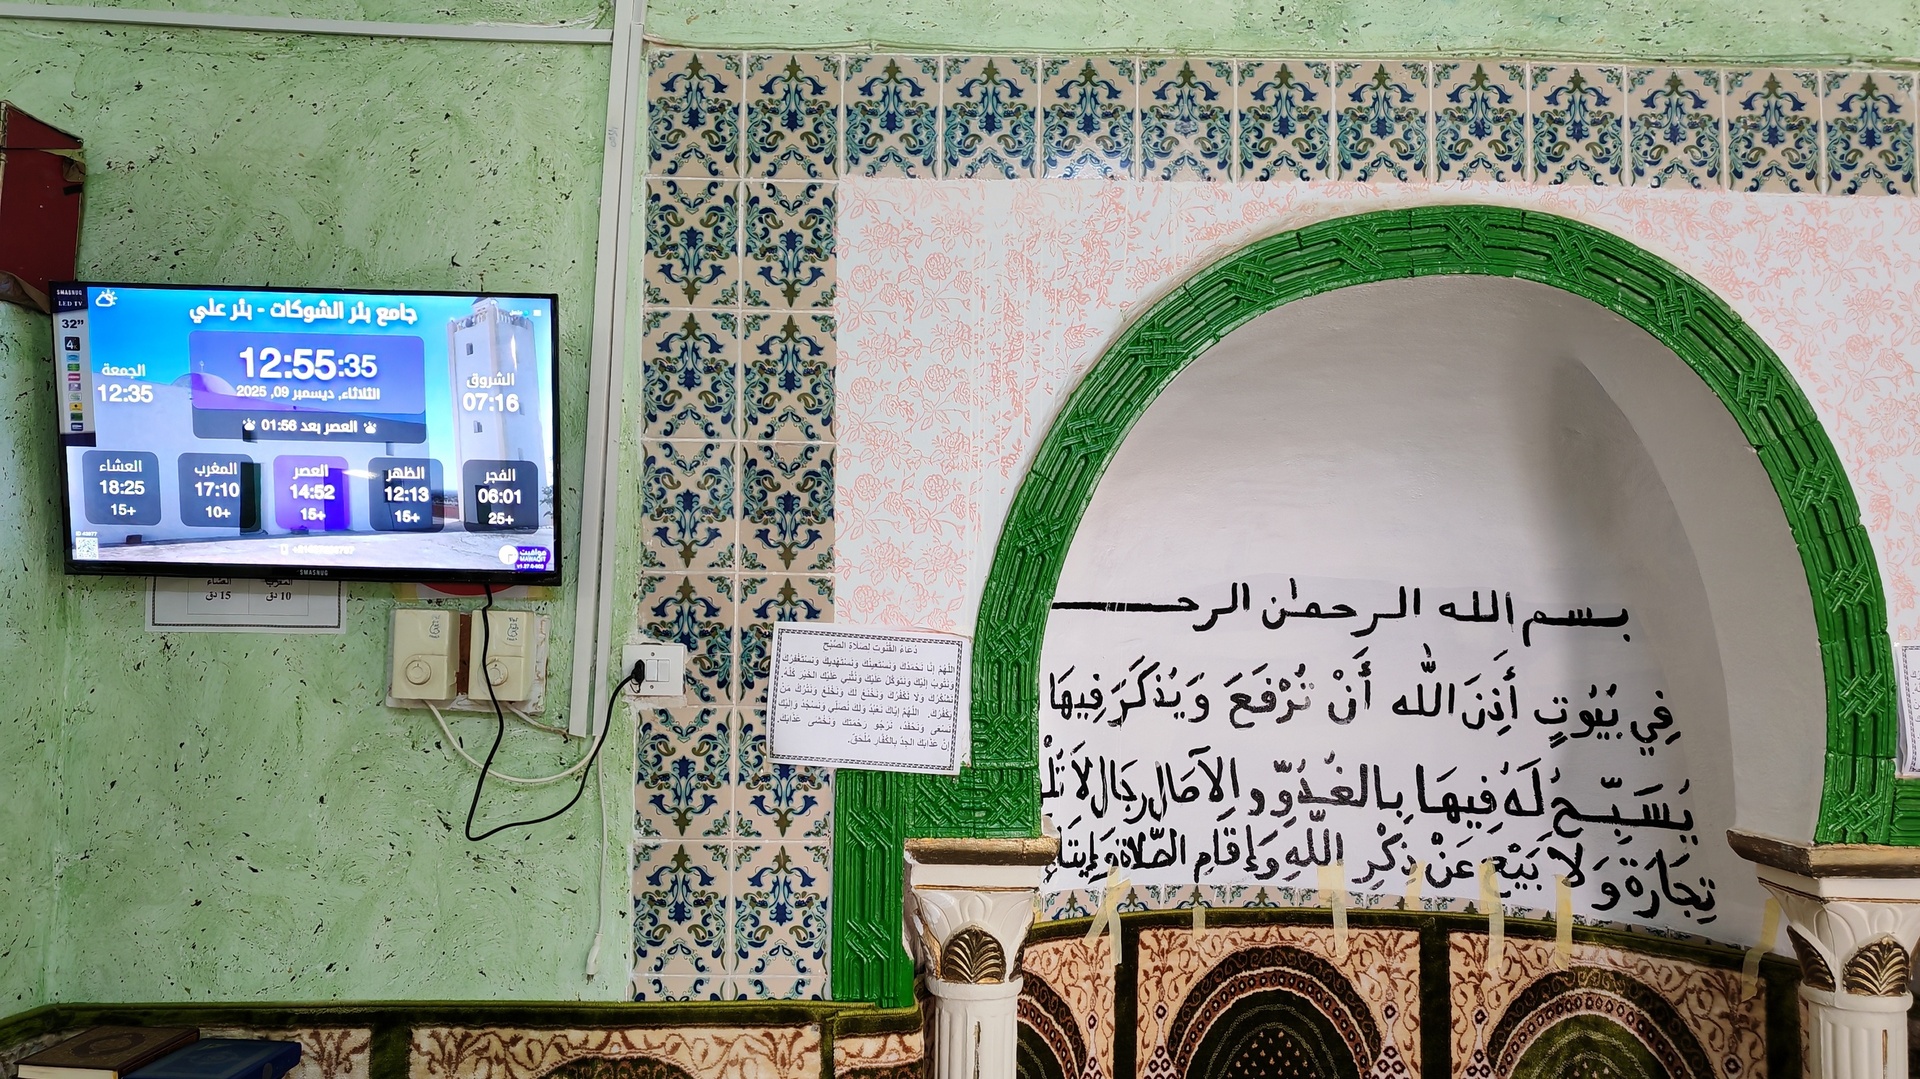 SMASNUG
LED TV
32"
4K
جامع بئر الشوكات - بئر علي
12:55:35
الثلاثاء, ديسمبر 09, 2025
العصر بعد 01:56
الجمعة
12:35
الشروق
07:16
الفجر
06:01
25+
الظهر
12:13
15+
العصر
14:52
15+
المغرب
17:10
10+
العشاء
18:25
15+
مواقيت
MAWAQIT
SMASNUG
المغرب
العشاء
10 دق
15 دق
دُعَاءُ القُنُوت لصَلاة الصُبْح
اللَّهُمَّ إنَّا نَحْمَدُكَ وَنَسْتَعينُكَ وَنَسْتَهْديكَ وَنَسْتَغْفرُكَ
وَنَتُوبُ إلَيْكَ وَنَتَوَكَّلُ عَلَيْكَ وَنُثْني عَلَيْكَ الخَيْرَ كُلَّهُ
نَشْكُرُكَ وَلا نَكْفُرُكَ وَنَخْنَعُ لَكَ وَنَخْلَعُ وَنَتْرُكُ مَنْ
يَكْفُرُكَ. اللَّهُمَّ إيَّاكَ نَعْبُدُ وَلَكَ نُصَلّي وَنَسْجُدُ وَإلَيْكَ
نَسْعَى وَنَحْفدُ، نَرْجُو رَحْمَتَكَ وَنَخْشَى عَذَابَكَ
إنَّ عَذَابَكَ الجدَّ بالكُفَّار مُلْحَقٌ.
بسم الله الرحمٰن الرحـ
فِي بُيُوتٍ أَذِنَ اللّٰه أَنْ تُرْفَعَ وَيُذْكَرَ فِيهَا
يُسَبِّحُ لَهُ فِيهَا بِالغُدُوِّ والآصَالِ رِجَالٌ لاَ تُلْ
تِجَارَةٌ وَلاَ بَيْعٌ عَنْ ذِكْرِ اللَّهِ وَإِقَامِ الصَّلاَةِ وَإِيتَاءِ